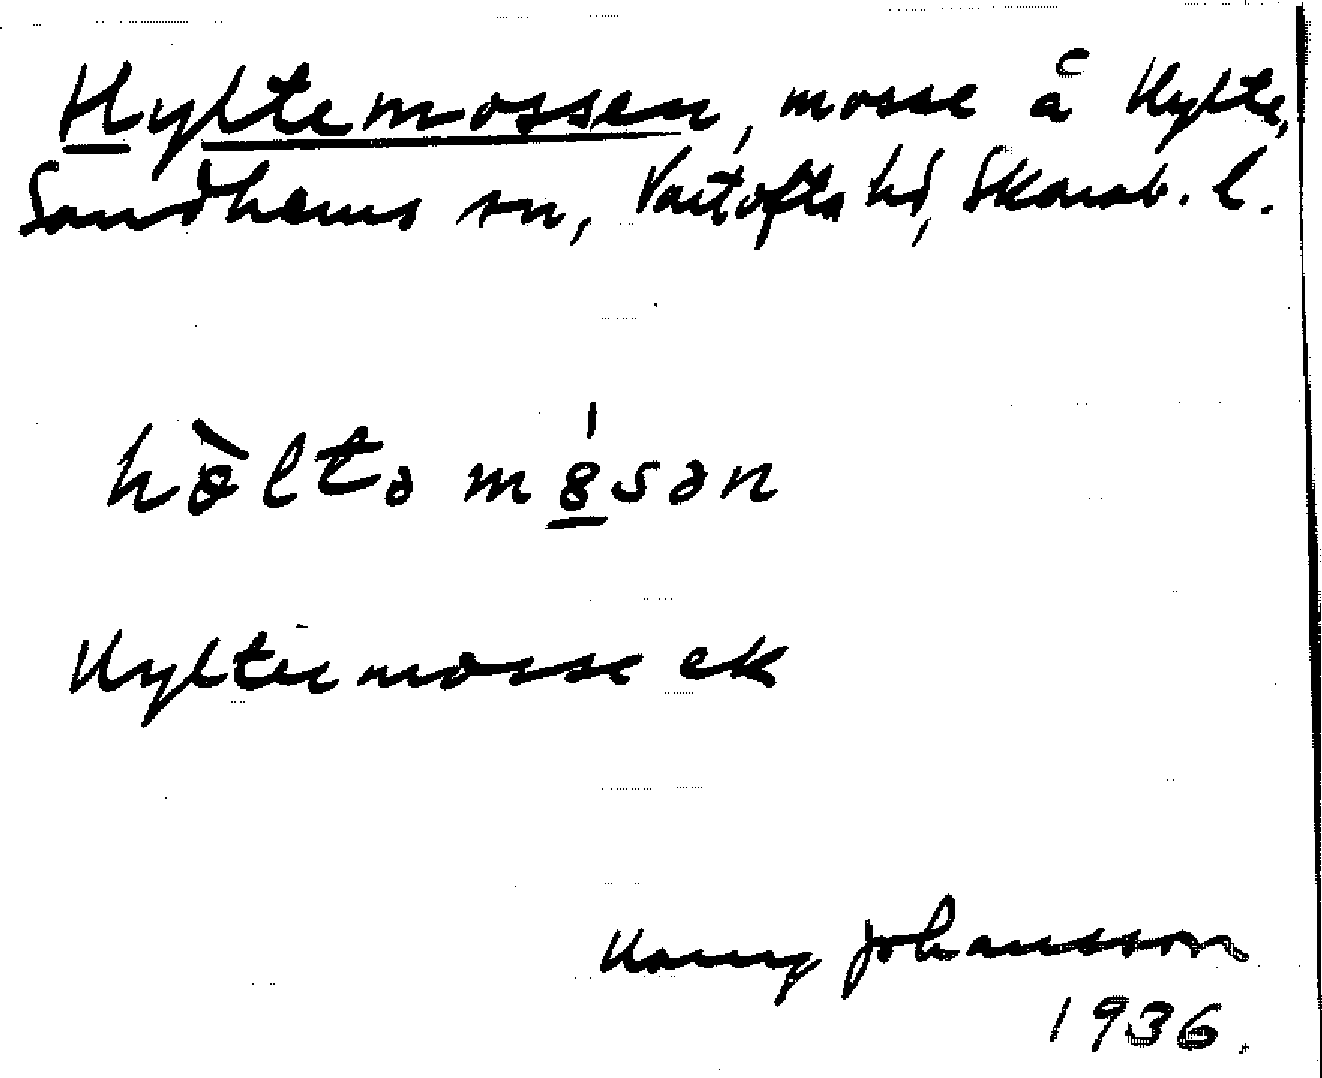 Hyltemossen, mosse å Hylte,
Sandhems sn, Vartofta hd, Skarab. l.
hòltə m8́sən
Hyltemosse ek
Harry Johansson
1936.